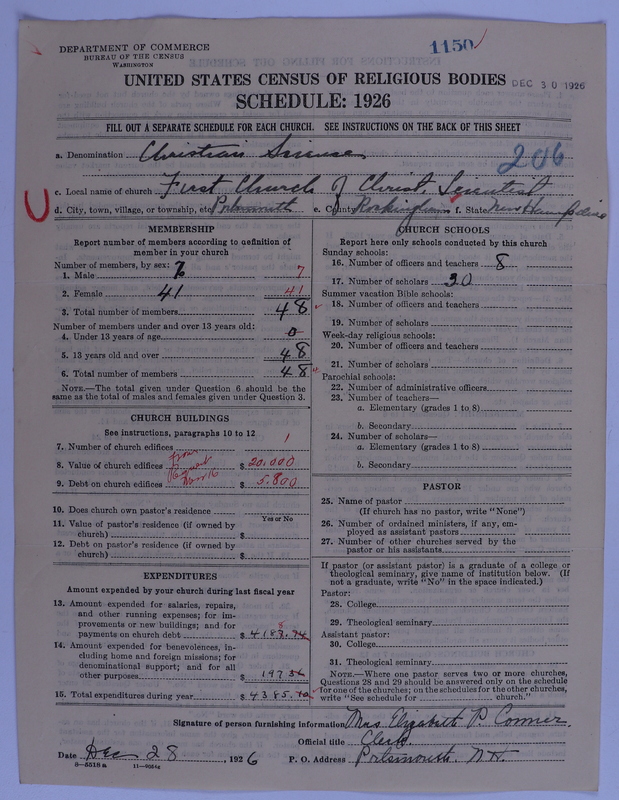 1150
DEPARTMENT OF COMMERCE
BUREAU OF THE CENSUS
WASHINGTON
UNITED STATES CENSUS OF RELIGIOUS BODIES
DEC 30 1926
SCHEDULE: 1926
FILL OUT A SEPARATE SCHEDULE FOR EACH CHURCH. SEE INSTRUCTIONS ON THE BACK OF THIS SHEET
a. Denomination Christian Science
206
c. Local name of church First Church of Christ, Scientist
d. City, town, village, or township, etc. Portsmouth e. County Rockingham f. State New Hampshire
MEMBERSHIP
Report number of members according to definition of
member in your church
Number of members, by sex:
1. Male 7 7
2. Female 41 41
3. Total number of members 48
Number of members under and over 13 years old:
4. Under 13 years of age 0
5. 13 years old and over 48
6. Total number of members 48
NOTE.—The total given under Question 6 should be the
same as the total of males and females given under Question 3.
CHURCH BUILDINGS
See instructions, paragraphs 10 to 12
7. Number of church edifices 1
8. Value of church edifices $ 20,000
9. Debt on church edifices $ 5,800
from
10. Does church own pastor's residence
Yes or No
11. Value of pastor's residence (if owned by
church) $
12. Debt on pastor's residence (if owned by
church) $
EXPENDITURES
Amount expended by your church during last fiscal year
13. Amount expended for salaries, repairs,
and other running expenses; for im-
provements or new buildings; and for
payments on church debt $
14. Amount expended for benevolences, in-
cluding home and foreign missions; for
denominational support; and for all
other purposes $
15. Total expenditures during year $ 4385.
CHURCH SCHOOLS
Report here only schools conducted by this church
Sunday schools:
16. Number of officers and teachers 8
17. Number of scholars 30
Summer vacation Bible schools:
18. Number of officers and teachers
19. Number of scholars
Week-day religious schools:
20. Number of officers and teachers
21. Number of scholars
Parochial schools:
22. Number of administrative officers
23. Number of teachers—
a. Elementary (grades 1 to 8)
b. Secondary
24. Number of scholars—
a. Elementary (grades 1 to 8)
b. Secondary
PASTOR
25. Name of pastor
(If church has no pastor, write "None")
26. Number of ordained ministers, if any, em-
ployed as assistant pastors
27. Number of other churches served by the
pastor or his assistants
If pastor (or assistant pastor) is a graduate of a college or
theological seminary, give name of institution below. (If
not a graduate, write "No" in the space indicated.)
Pastor:
28. College
29. Theological seminary
Assistant pastor:
30. College
31. Theological seminary
NOTE.—Where one pastor serves two or more churches,
Questions 28 and 29 should be answered only on the schedule
for one of the churches; on the schedules for the other churches,
write "See schedule for church."
Signature of person furnishing information Mrs. Elizabeth P. Conner
Official title Clerk
Date Dec 28, 1926 P. O. Address Portsmouth, N.H.
8-5518a 11-9054